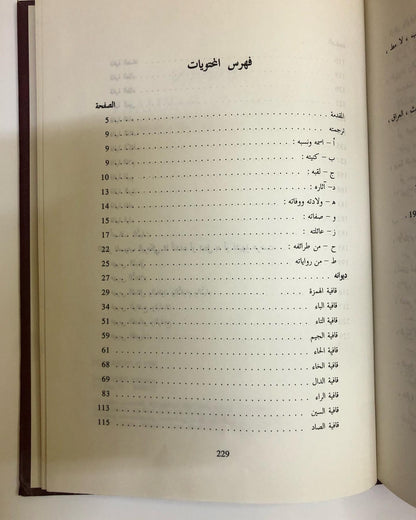 فهرس المحتويات
الصفحة
المقدمة . . . . . . . . 5
ترجمته . . . . . . . . 9
أ - اسمه ونسبه : . . . . . . . . 9
ب - كنيته : . . . . . . . . 9
ج - لقبه : . . . . . . . . 10
د - آثاره : . . . . . . . . 13
ه - ولادته ووفاته : . . . . . . . . 13
و - صفاته : . . . . . . . . 15
ز - عائلته : . . . . . . . . 17
ح - من طرائفه : . . . . . . . . 22
ط - من رواياته : . . . . . . . . 25
ديوانه . . . . . . . . 27
قافية الهمزة . . . . . . . . 29
قافية الباء . . . . . . . . 34
قافية التاء . . . . . . . . 51
قافية الجيم . . . . . . . . 59
قافية الحاء . . . . . . . . 61
قافية الخاء . . . . . . . . 68
قافية الدال . . . . . . . . 69
قافية الراء . . . . . . . . 83
قافية السين . . . . . . . . 113
قافية الصاد . . . . . . . . 115
229
لا مط ،
، العراق ،